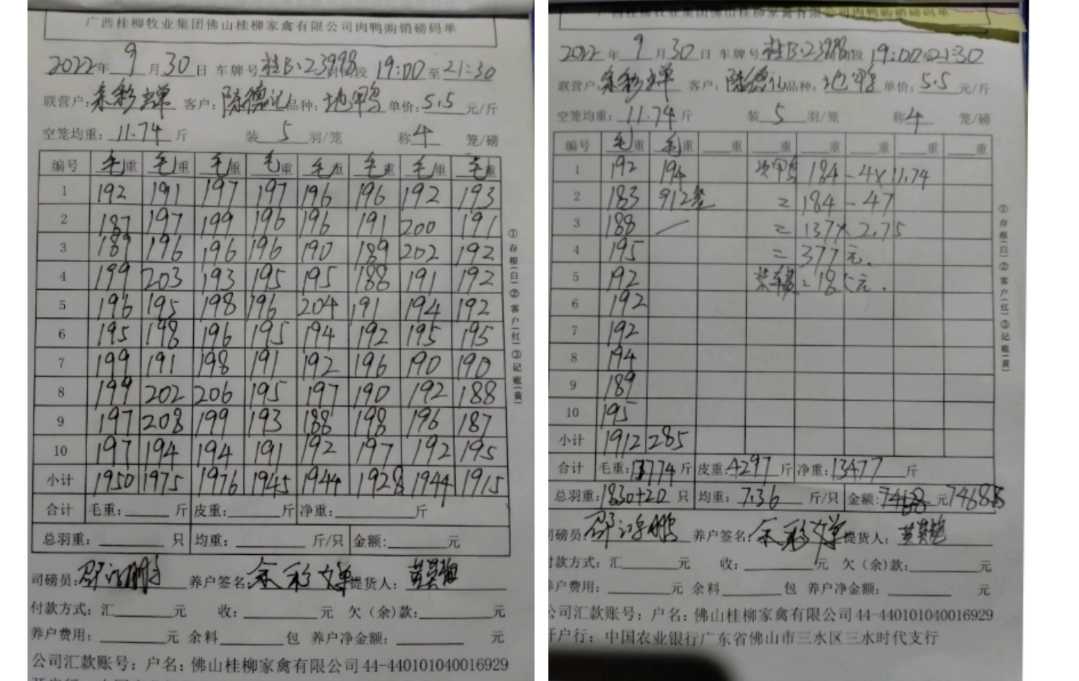 广西桂柳牧业集团佛山桂柳家禽有限公司肉鸭购销磅码单
2022年 9 月 30 日 车牌号 桂B·23998 时段 19:00 至 21:30
联营户: 客户: 陈德 品种: 地鸭 单价: 5.5 元/斤
空笼均重: 11.74 斤 装 5 羽/笼 称 4 笼/磅
编号 毛重 毛重 毛重 毛重 毛重 毛重 毛重 毛重
1 192 191 197 197 196 196 192 193
2 187 197 199 196 196 191 200 191
3 189 196 196 196 190 189 202 192
4 199 203 193 195 195 188 191 192
5 196 195 198 196 204 191 194 192
6 195 198 196 195 194 192 195 195
7 199 191 198 191 192 196 190 190
8 199 202 206 195 197 190 192 188
9 197 208 199 193 188 198 196 187
10 197 194 194 191 192 197 192 195
小计 1950 1975 1976 1945 1944 1928 1944 1915
合计 毛重: 斤 皮重: 斤 净重: 斤
总羽重: 只 均重: 斤/只 金额: 元
司磅员: 养户签名: 余彩婵 提货人:
付款方式: 汇 元 收: 元 欠(余)款: 元
养户费用: 元 余料 包 养户净金额: 元
公司汇款账号: 户名: 佛山桂柳家禽有限公司 44-440101040016929
①存根(白)②客户(红)③记账(黄)
广西桂柳牧业集团佛山桂柳家禽有限公司肉鸭购销磅码单
2022年 9 月 30 日 车牌号 桂B·23998 时段 19:00 至 21:30
联营户: 客户: 陈德 品种: 地鸭 单价: 5.5 元/斤
空笼均重: 11.74 斤 装 5 羽/笼 称 4 笼/磅
编号 毛重 毛重 重 重 重 重 重
1 192 194 184-4×11.74
2 183 91 2 = 184-47
3 188 = 137×2.75
4 195 = 377元.
5 192 = 185元.
6 192
7 192
8 194
9 189
10 195
小计 1912 285
合计 毛重: 17774 斤 皮重: 4297 斤 净重: 13477 斤
总羽重: 1830+20 只 均重: 7.36 斤/只 金额: 元
司磅员: 养户签名: 余彩婵 提货人:
付款方式: 汇 元 收: 元 欠(余)款: 元
养户费用: 元 余料 包 养户净金额: 元
公司汇款账号: 户名: 佛山桂柳家禽有限公司 44-440101040016929
开户行: 中国农业银行广东省佛山市三水区三水时代支行
①存根(白)②客户(红)③记账(黄)